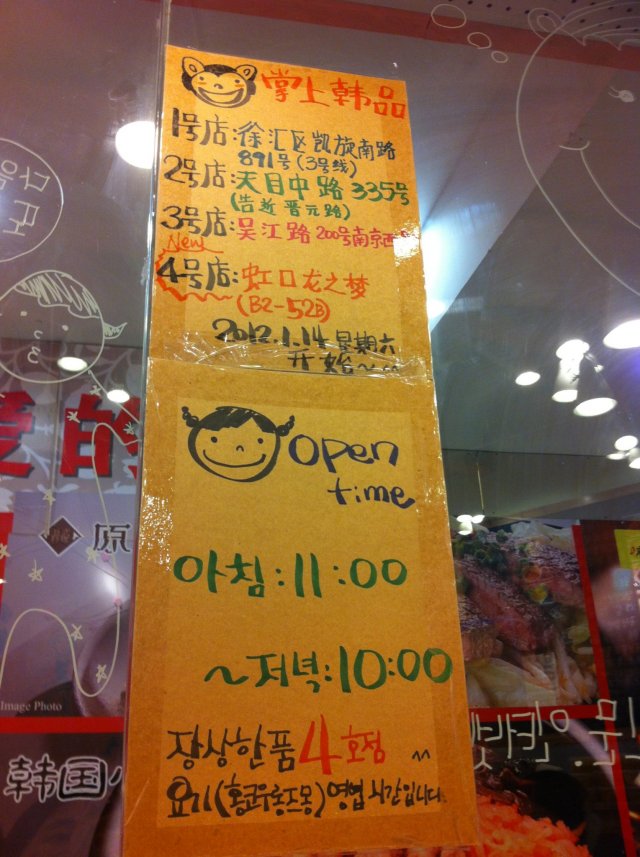 掌上韩品
1号店:徐汇区凯旋南路
891号(3号线)
2号店:天目中路335号
(告近晋元路)
3号店:吴江路200号南京西
New
4号店:虹口龙之梦
(B2-52B)
2012.1.14星期六
开始~~
Open
time
아침:11:00
~저녁:10:00
장상한품4호점~
요기(홍코우롱즈몽)영업시간입니다
的
原
Image Photo
韩国